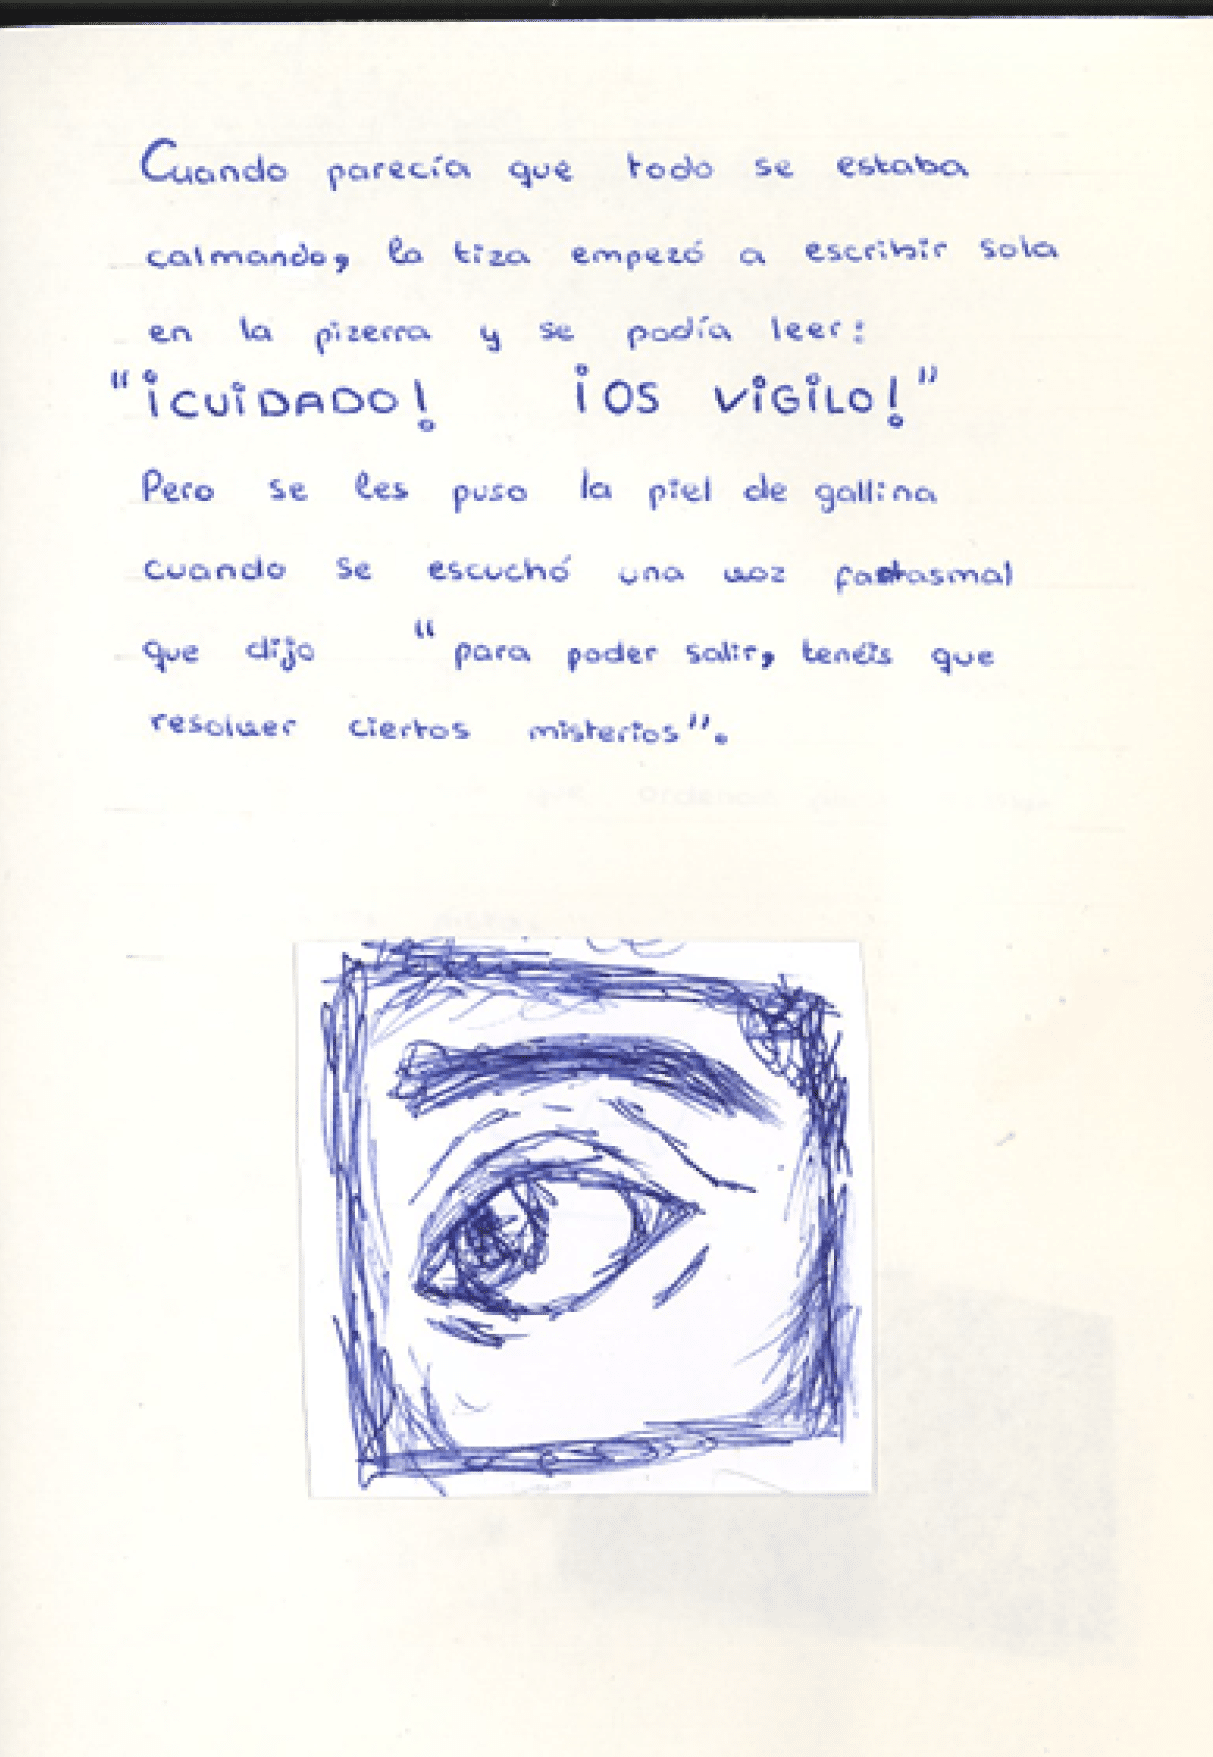 Cuando parecía que todo se estaba
calmando, la tiza empezó a escribir sola
en la pizerra y se podía leer:
"¡CUIDADO! ¡OS VIGILO!"
Pero se les puso la piel de gallina
cuando se escuchó una voz fantasmal
que dijo "para poder salir, tenéis que
resolver ciertos misterios".